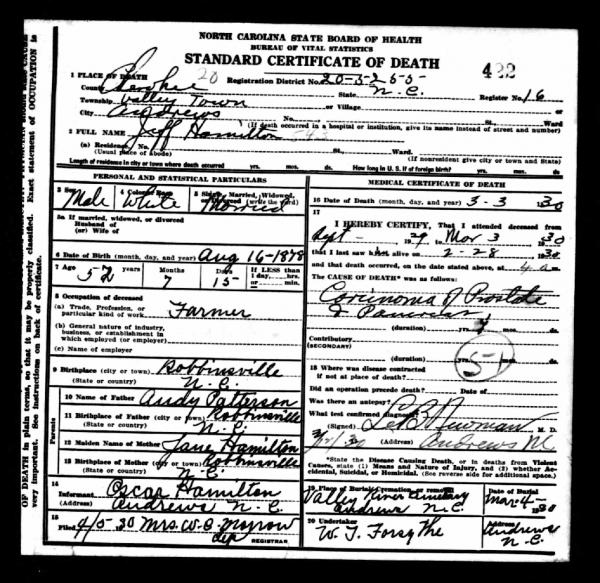 NORTH CAROLINA STATE BOARD OF HEALTH
BUREAU OF VITAL STATISTICS
STANDARD CERTIFICATE OF DEATH
422
1 PLACE OF DEATH 20 Registration District No. 20-3255
County State N.C. Register No. 16
Township Valley Town or Village
City Andrews No. St. Ward
(If death occurred in a hospital or institution, give its name instead of street and number)
2 FULL NAME Jeff Hamilton 543
(a) Residence, No. St. Ward.
(Usual place of abode) (If nonresident give city or town and State)
Length of residence in city or town where death occurred yrs. mos. ds. How long in U. S. if of foreign birth? yrs. mos. ds.
PERSONAL AND STATISTICAL PARTICULARS
3 Sex 4 Color or Race 5 Single, Married, Widowed, or Divorced (write the word)
Male White Married
5a If married, widowed, or divorced
Husband of
(or) Wife of
6 Date of Birth (month, day, and year) Aug 16-1878
7 Age years Months Days If LESS than
52 7 15 1 day, hrs.
or min.
8 Occupation of deceased
(a) Trade, Profession, or
particular kind of work Farmer
(b) General nature of industry,
business, or establishment in
which employed (or employer)
(c) Name of employer
9 Birthplace (city or town) Robbinsville
(State or country) N.C.
Parents
10 Name of Father Andy Patterson
11 Birthplace of Father (city or town) Robbinsville
(State or country) N.C.
12 Maiden Name of Mother Jane Hamilton
13 Birthplace of Mother (city or town) Robbinsville
(State or country)
14 Informant Oscar Hamilton
(Address) Andrews N.C.
15 Filed 4/5-30 Mrs. W. C.
dep REGISTRAR
MEDICAL CERTIFICATE OF DEATH
16 Date of Death (month, day, and year) 3-3 1930
17
I HEREBY CERTIFY, That I attended deceased from
Sept 1929 to Mar 3 1930
that I last saw him alive on 2-28 1930
and that death occurred, on the date stated above, at 4 am
The CAUSE OF DEATH* was as follows:
Corcinoma of Prostate
& Pancreas
(duration) yrs. mos. ds.
Contributory
(SECONDARY)
(duration) yrs. mos. ds.
51
18 Where was disease contracted
if not at place of death?
Did an operation precede death? Date of
Was there an autopsy?
What test confirmed diagnosis?
(Signed) Newman M. D.
(Address) Andrews NC
*State the Disease Causing Death, or in deaths from Violent
Causes, state (1) Means and Nature of Injury, and (2) whether Accidental,
Suicidal, or Homicidal. (See reverse side for additional space.)
19 Place of Burial, Cremation or removal Date of Burial
Valley River Cemetary Mar-4- 1930
Andrews N.C.
20 Undertaker Address
W. T. Forsythe Andrews
N.C.
OF DEATH in plain terms, so that it may be properly classified. Exact statement of OCCUPATION is
very important. See instructions on back of certificate.